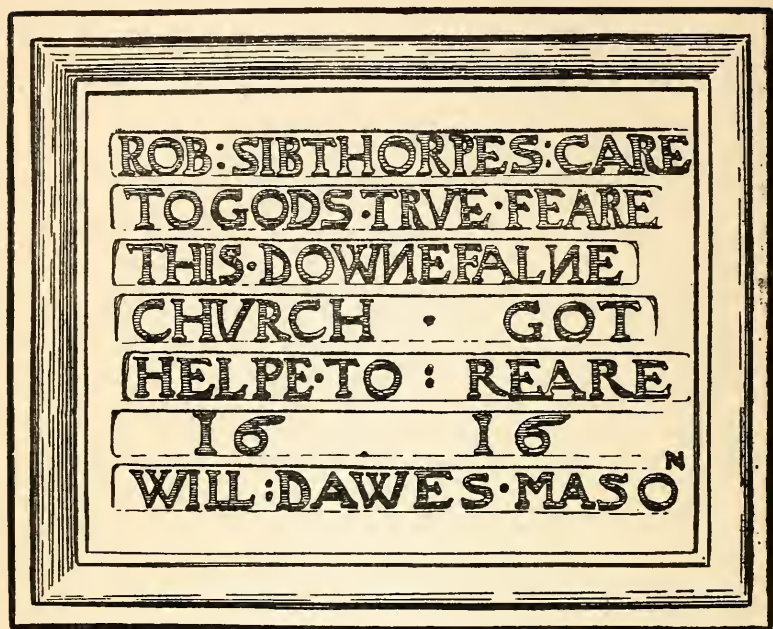 ROB:SIBTHORPES:CARE
TO GODS·TRVE·FEARE
THIS·DOWNEFALNE
CHVRCH · GOT
HELPE·TO : REARE
16 . 16
WILL:DAWES·MASON